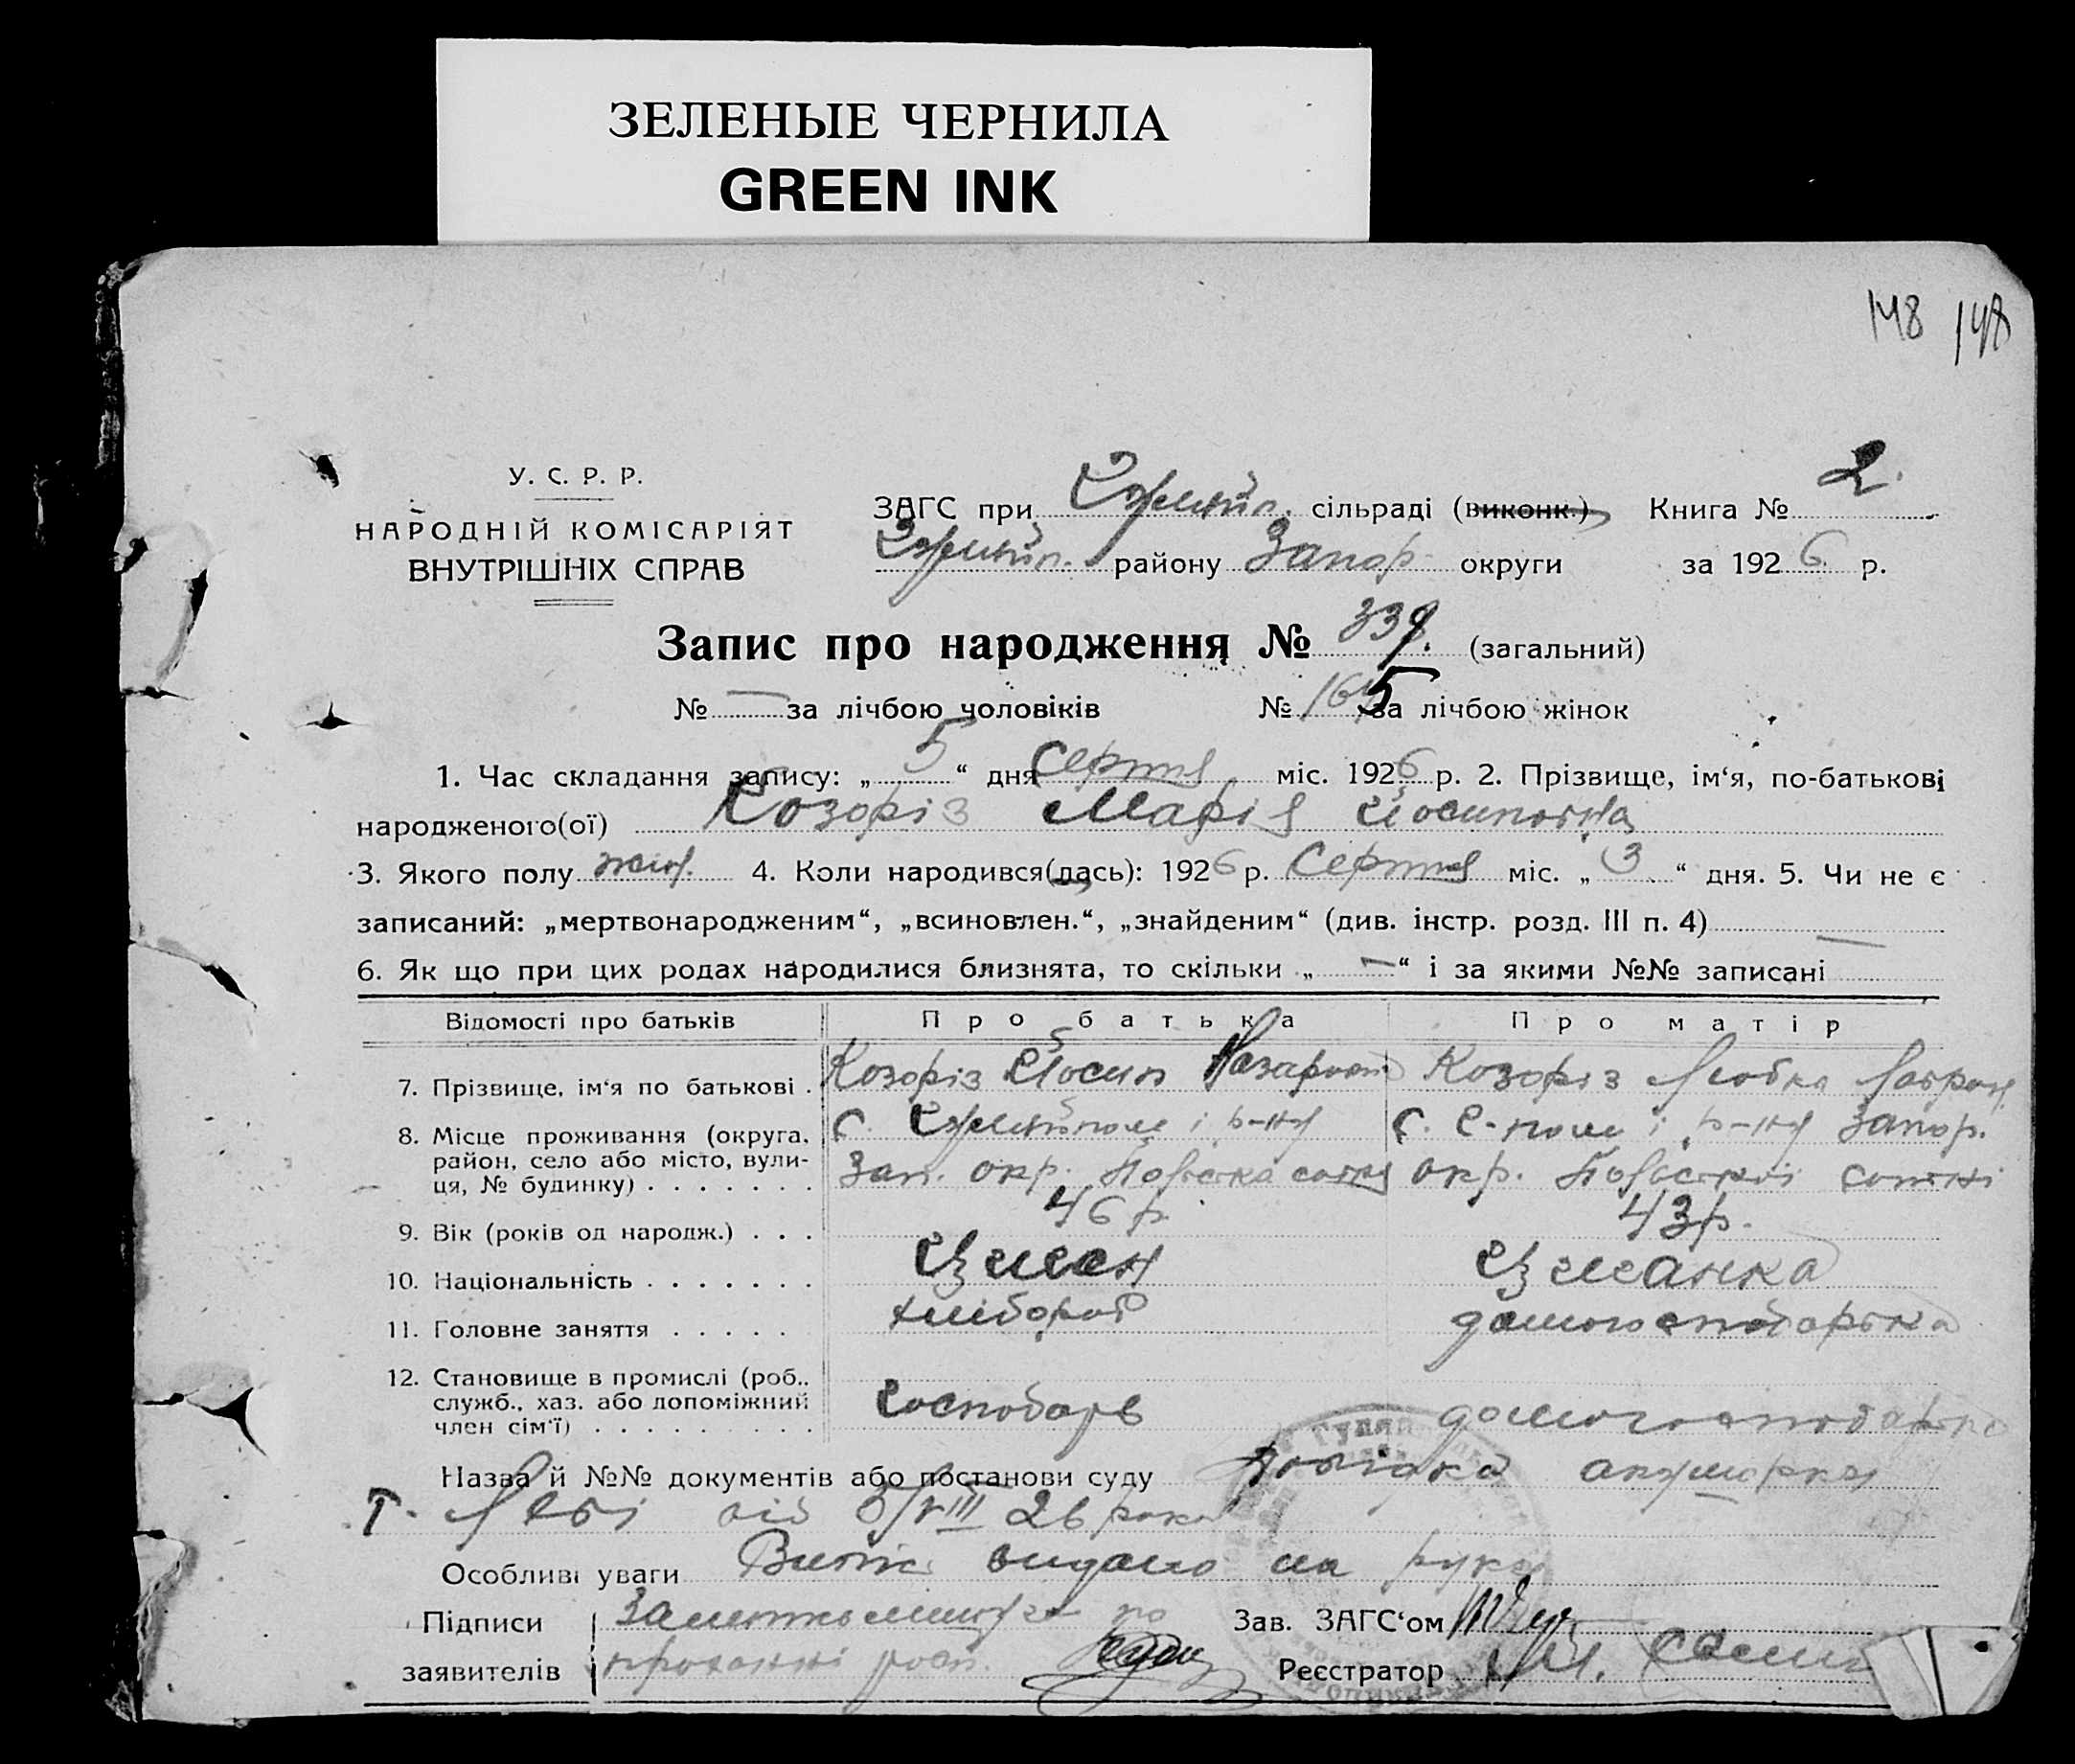 ЗЕЛЕНЫЕ ЧЕРНИЛА
GREEN INK
148 148
У. С. Р. Р.
НАРОДНІЙ КОМІСАРІЯТ
ВНУТРІШНІХ СПРАВ
ЗАГС при сільраді (виконк.) Книга № 2.
району Запор. округи за 1926 р.
Запис про народження № 339. (загальний)
№ — за лічбою чоловіків № 165 за лічбою жінок
1. Час складання запису: „ 5 “ дня Серпня міс. 1926 р. 2. Прізвище, ім‘я, по-батькові
народженого(ої) Козоріз Марія Йосиповна
3. Якого полу жин. 4. Коли народився(лась): 1926 р. Серпня міс. „ 3 “ дня. 5. Чи не є
записаний: „мертвонародженим“, „всиновлен.“, „знайденим“ (див. інстр. розд. III п. 4) —
6. Як що при цих родах народилися близнята, то скільки „ — “ і за якими №№ записані
Відомості про батьків Про батька Про матір
7. Прізвище, ім‘я по батькові . Козоріз Йосип Козоріз Любка
8. Місце проживання (округа, с. р-ну с. р-ну Запор.
район, село або місто, вули- Зап. окр. окр. сотні
ця, № будинку) . . . . . . .
9. Вік (років од народж.) . . . 46 р. 43 р.
10. Національність . . . . . . .
11. Головне заняття . . . . . хлібороб домогосподарка
12. Становище в промислі (роб.,
служб., хаз. або допоміжний Господарь домогосподарка
член сім‘ї) . . . . . . . . .
Назва й №№ документів або постанови суду Довідка акушерки
т. від 5/VIII 26 року
Особливі уваги Витяг видано на руки
Підписи Зав. ЗАГС‘ом
заявителів Реєстратор